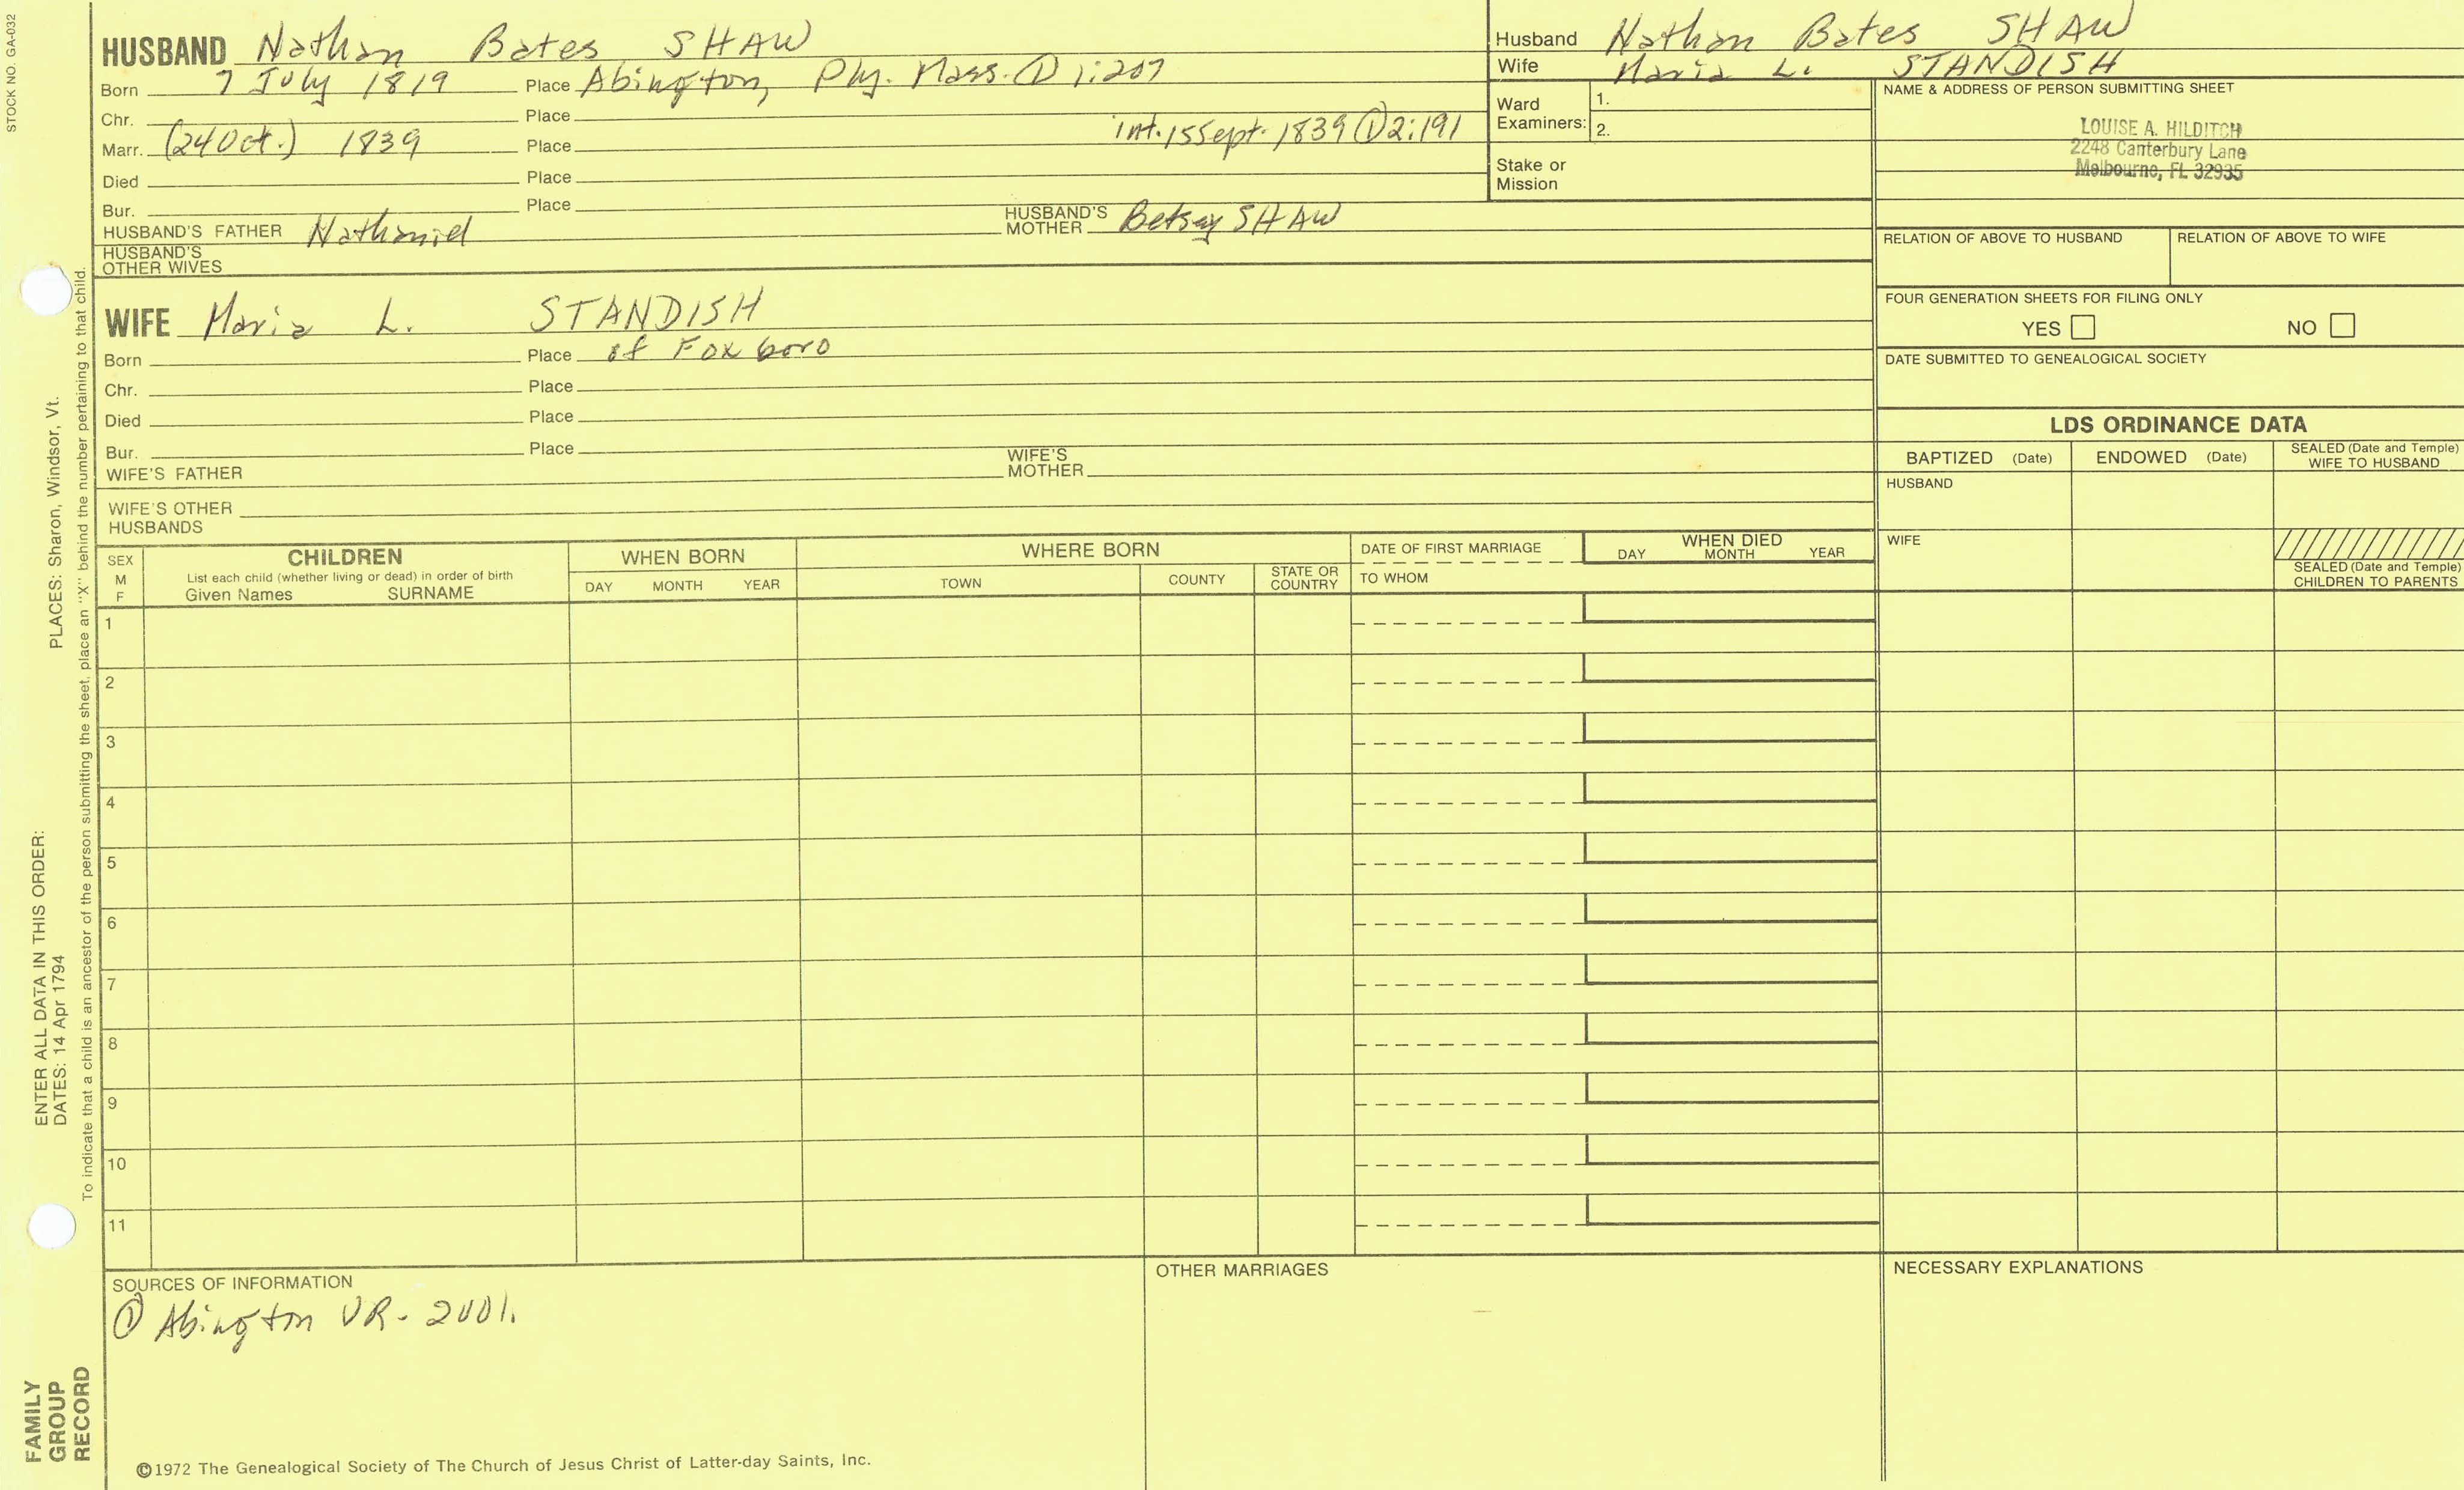 STOCK NO. GA-032
HUSBAND Nathan Bates SHAW
Born 7 July 1819 Place Abington, Ply. Mass. ① 1:207
Chr. Place
Marr. (24 Oct.) 1839 Place int. 15 Sept. 1839 ① 2:191
Died Place
Bur. Place
HUSBAND'S FATHER Nathaniel HUSBAND'S MOTHER Betsey SHAW
HUSBAND'S OTHER WIVES
Husband Nathan Bates SHAW
Wife Maria L. STANDISH
Ward Examiners: 1.
2.
Stake or Mission
NAME & ADDRESS OF PERSON SUBMITTING SHEET
LOUISE A. HILDITCH
2248 Canterbury Lane
Melbourne, FL 32935
RELATION OF ABOVE TO HUSBAND RELATION OF ABOVE TO WIFE
FOUR GENERATION SHEETS FOR FILING ONLY
YES NO
DATE SUBMITTED TO GENEALOGICAL SOCIETY
WIFE Maria L. STANDISH
Born Place of Foxboro
Chr. Place
Died Place
Bur. Place
WIFE'S FATHER WIFE'S MOTHER
WIFE'S OTHER HUSBANDS
LDS ORDINANCE DATA
BAPTIZED (Date) ENDOWED (Date) SEALED (Date and Temple) WIFE TO HUSBAND
HUSBAND
WIFE
SEALED (Date and Temple) CHILDREN TO PARENTS
SEX M F
CHILDREN
List each child (whether living or dead) in order of birth
Given Names SURNAME
WHEN BORN
DAY MONTH YEAR
WHERE BORN
TOWN COUNTY STATE OR COUNTRY
DATE OF FIRST MARRIAGE
TO WHOM
WHEN DIED
DAY MONTH YEAR
1
2
3
4
5
6
7
8
9
10
11
SOURCES OF INFORMATION
① Abington VR - 2001.
OTHER MARRIAGES
NECESSARY EXPLANATIONS
©1972 The Genealogical Society of The Church of Jesus Christ of Latter-day Saints, Inc.
FAMILY GROUP RECORD
ENTER ALL DATA IN THIS ORDER:
DATES: 14 Apr 1794
PLACES: Sharon, Windsor, Vt.
To indicate that a child is an ancestor of the person submitting the sheet, place an "X" behind the number pertaining to that child.